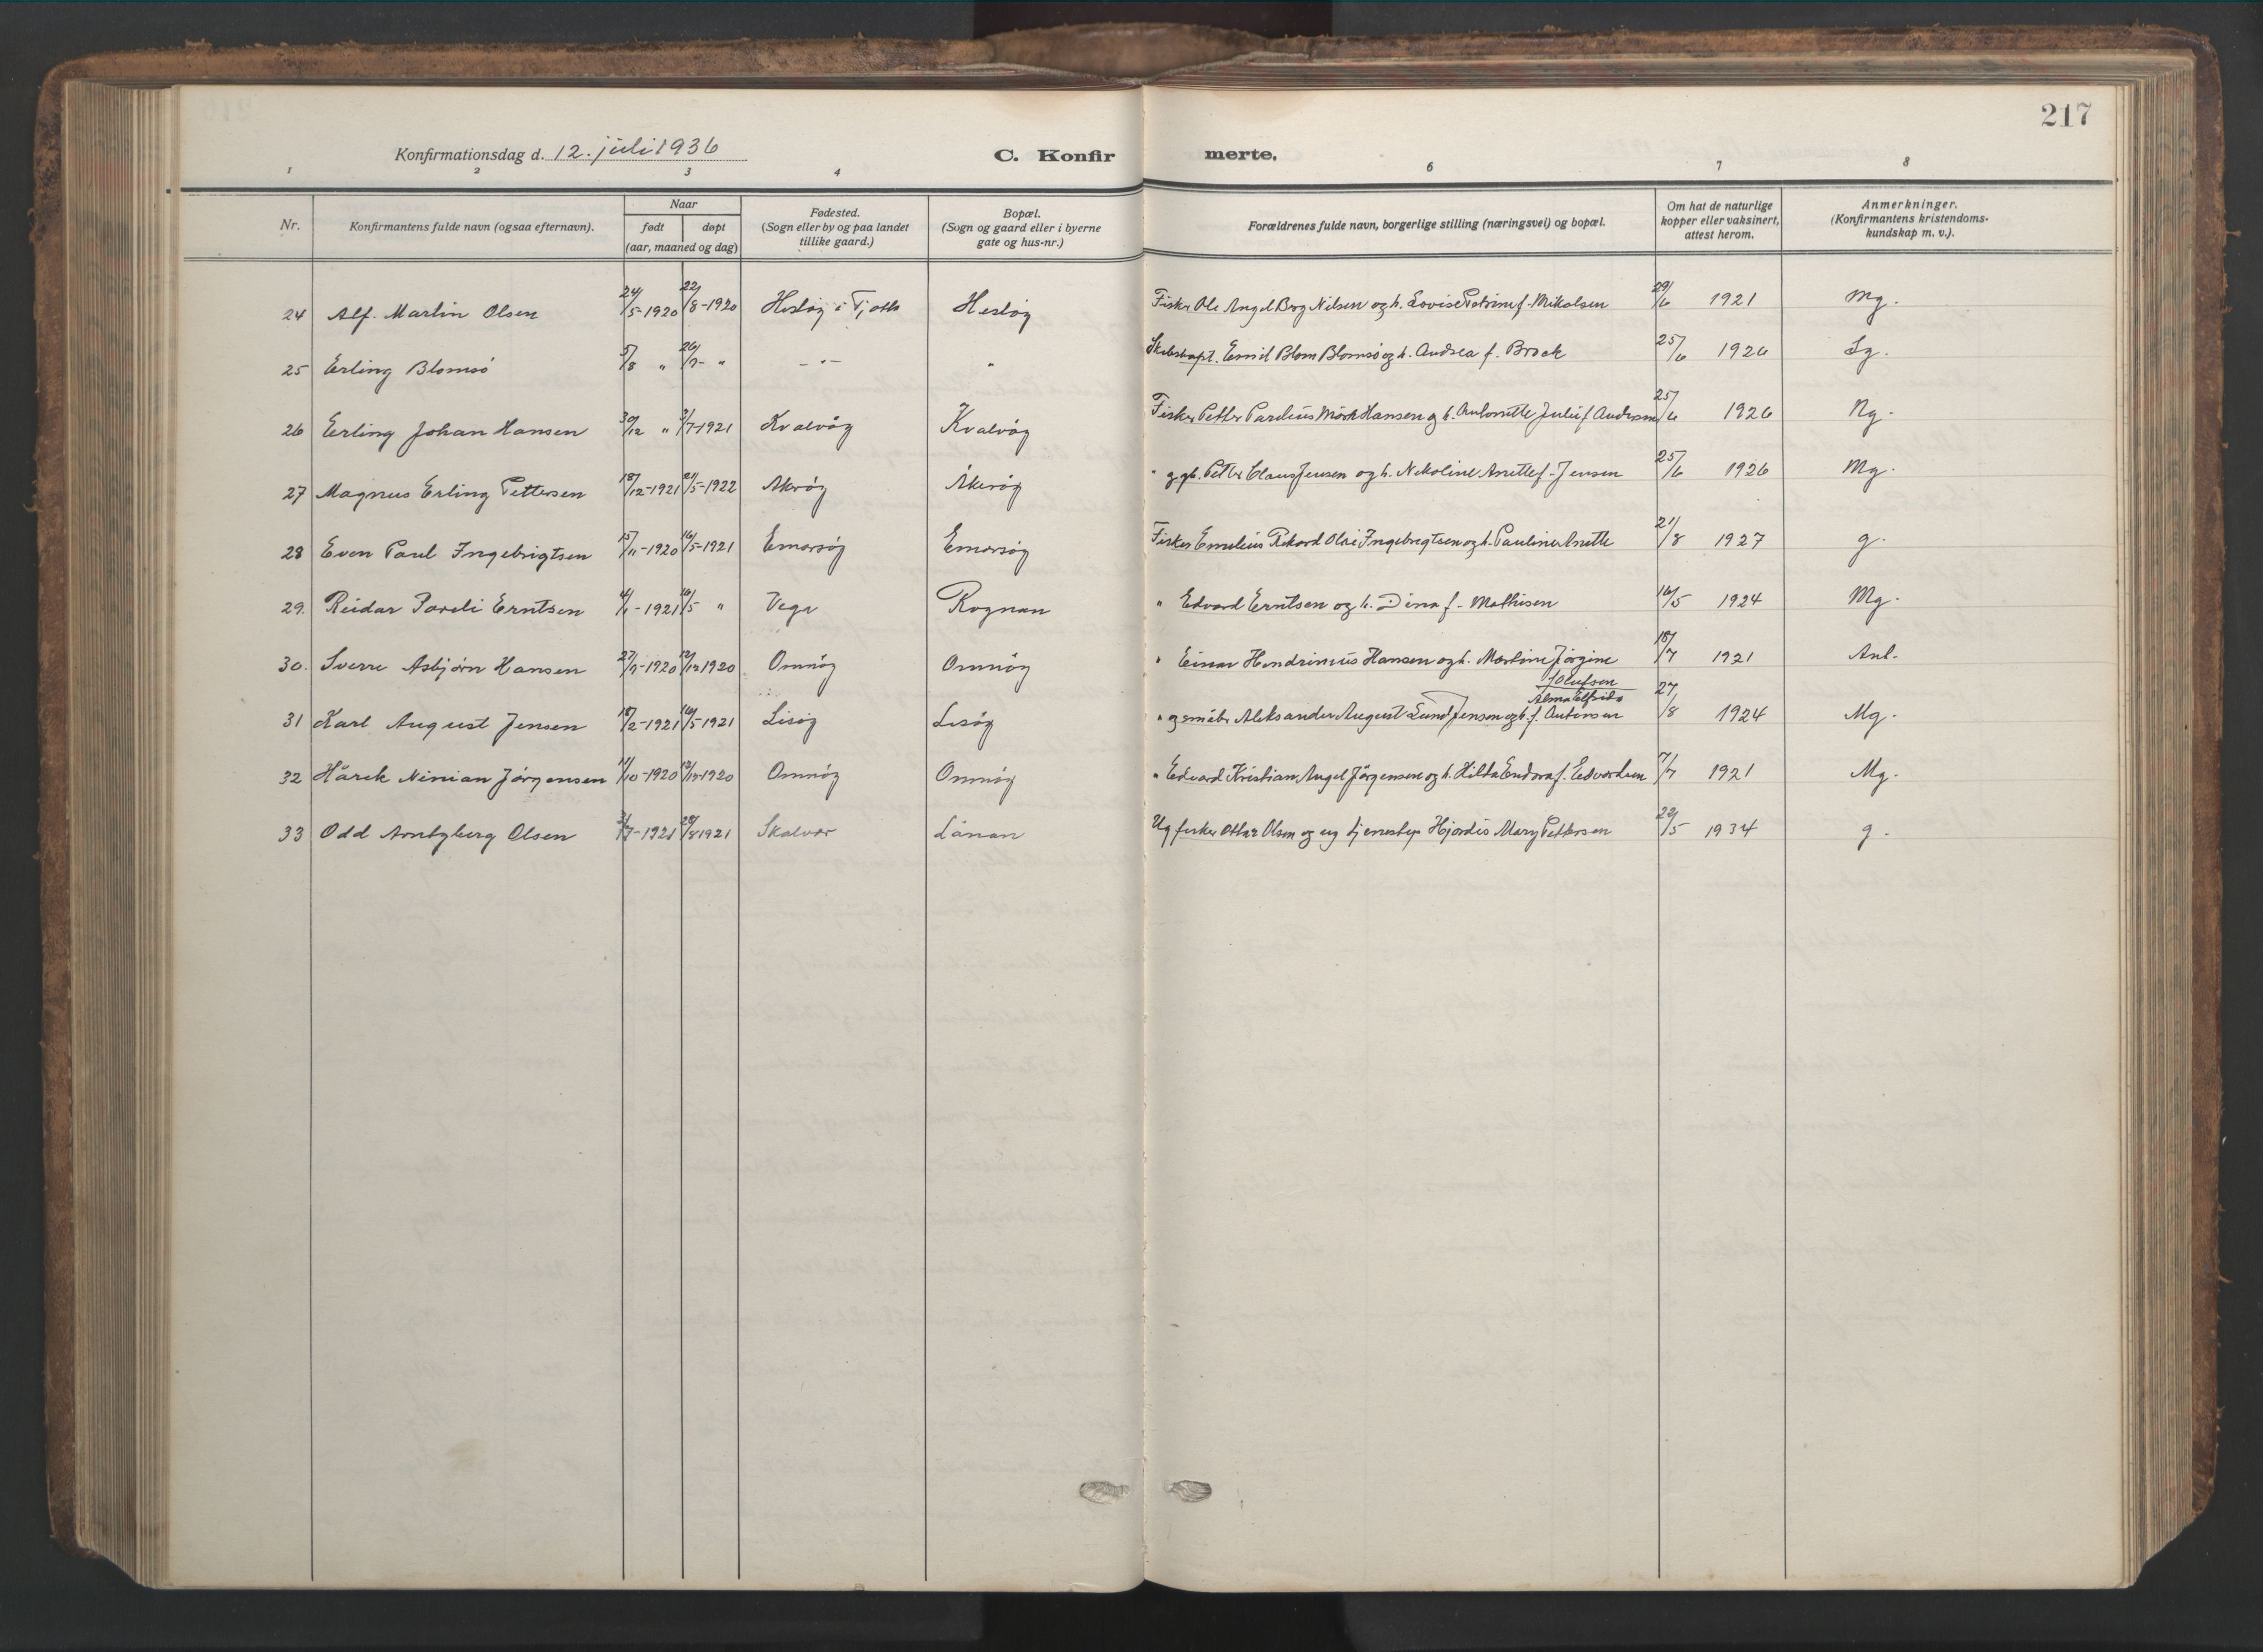 217
Konfirmationsdag d. 12. juli 1936
C. Konfirmerte.
1 2 3 4 6 7 8
Nr.
Konfirmantens fulde navn (ogsaa efternavn).
Naar
født døpt
(aar, maaned og dag)
Fødested.
(Sogn eller by og paa landet
tillike gaard.)
Bopæl.
(Sogn og gaard eller i byerne
gate og hus-nr.)
Forældrenes fulde navn, borgerlige stilling (næringsvei) og bopæl.
Om hat de naturlige
kopper eller vaksinert,
attest herom.
Anmerkninger.
(Konfirmantens kristendoms-
kundskap m. v.).
24 Alf. Martin Olsen 24/5-1920 22/8-1920 Hestøy i Tjøtta Hestøy Fisker Ole Angel Berg Nilsen og h. Lovise Petrine f. Mikalsen 29/6 1921 Mg.
25 Erling Blomsö 5/8 " 26/9- " - " - " Skibskapt. Emil Blom Blomsö og h. Andrea f. Brock 25/6 1926 Sg.
26 Erling Johan Hansen 30/12 " 3/7-1921 Kvalöy Kvalöy Fisker Petter Parelius Mörk Hansen og h. Antonette Julie f. Andersen 25/6 1926 Ng.
27 Magnus Erling Pettersen 18/12-1921 21/5-1922 Åkeröy Åkeröy " og gb. Petter Claus Jensen og h. Nikoline Anette f. Jensen 25/6 1926 Mg.
28 Even Paul Ingebrigtsen 15/11-1920 16/5-1921 Emarsöy Emarsöy Fisker Emelius Rikard Olai Ingebregtsen og h. Pauline Anette 21/8 1927 g.
29. Reidar Pareli Erntsen 4/1-1921 16/5 " Vega Rognan " Edvard Erntsen og h. Dina f. Mathisen 16/5 1924 Mg.
30. Sverre Asbjørn Hansen 27/9-1920 12/12 1920 Omnöy Omnöy " Einar Hendrinius Hansen og h. Martine Jörgine f. Olufsen 18/7 1921 Anl.
31 Karl August Jensen 18/2-1921 16/5-1921 Lisöy Lisöy " og småbr. Aleksander August Lund Jensen og h. Alma Elfrida f. Antonsen 27/8 1924 Mg.
32 Hårek Ninian Jörgensen 11/10-1920 12/12-1920 Omnöy Omnöy " Edvard Kristian Angel Jörgensen og h. Hilda Endora f. Edvardsen 7/7 1921 Mg.
33 Odd Arntzberg Olsen 3/7-1921 28/8 1921 Skalvær Lånan Ug fisker Ottar Olsen og ug tjenestep. Hjördis Mary Pettersen 29/5 1934 g.